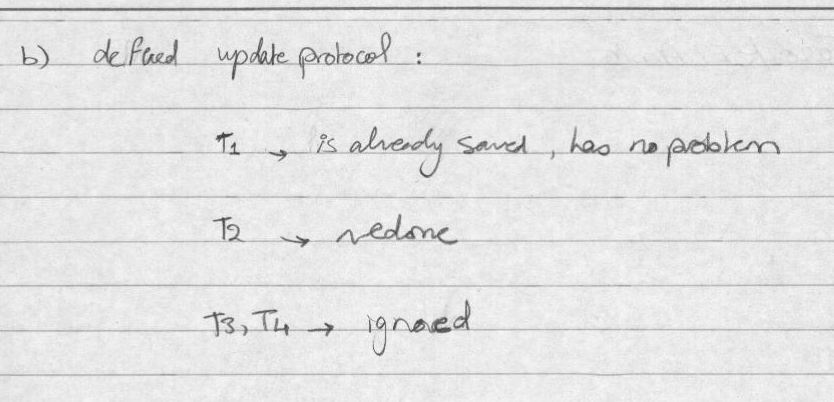 b) deffred update protocol :
T1 → is already saved, has no problem
T2 → redone
T3, T4 → ignored